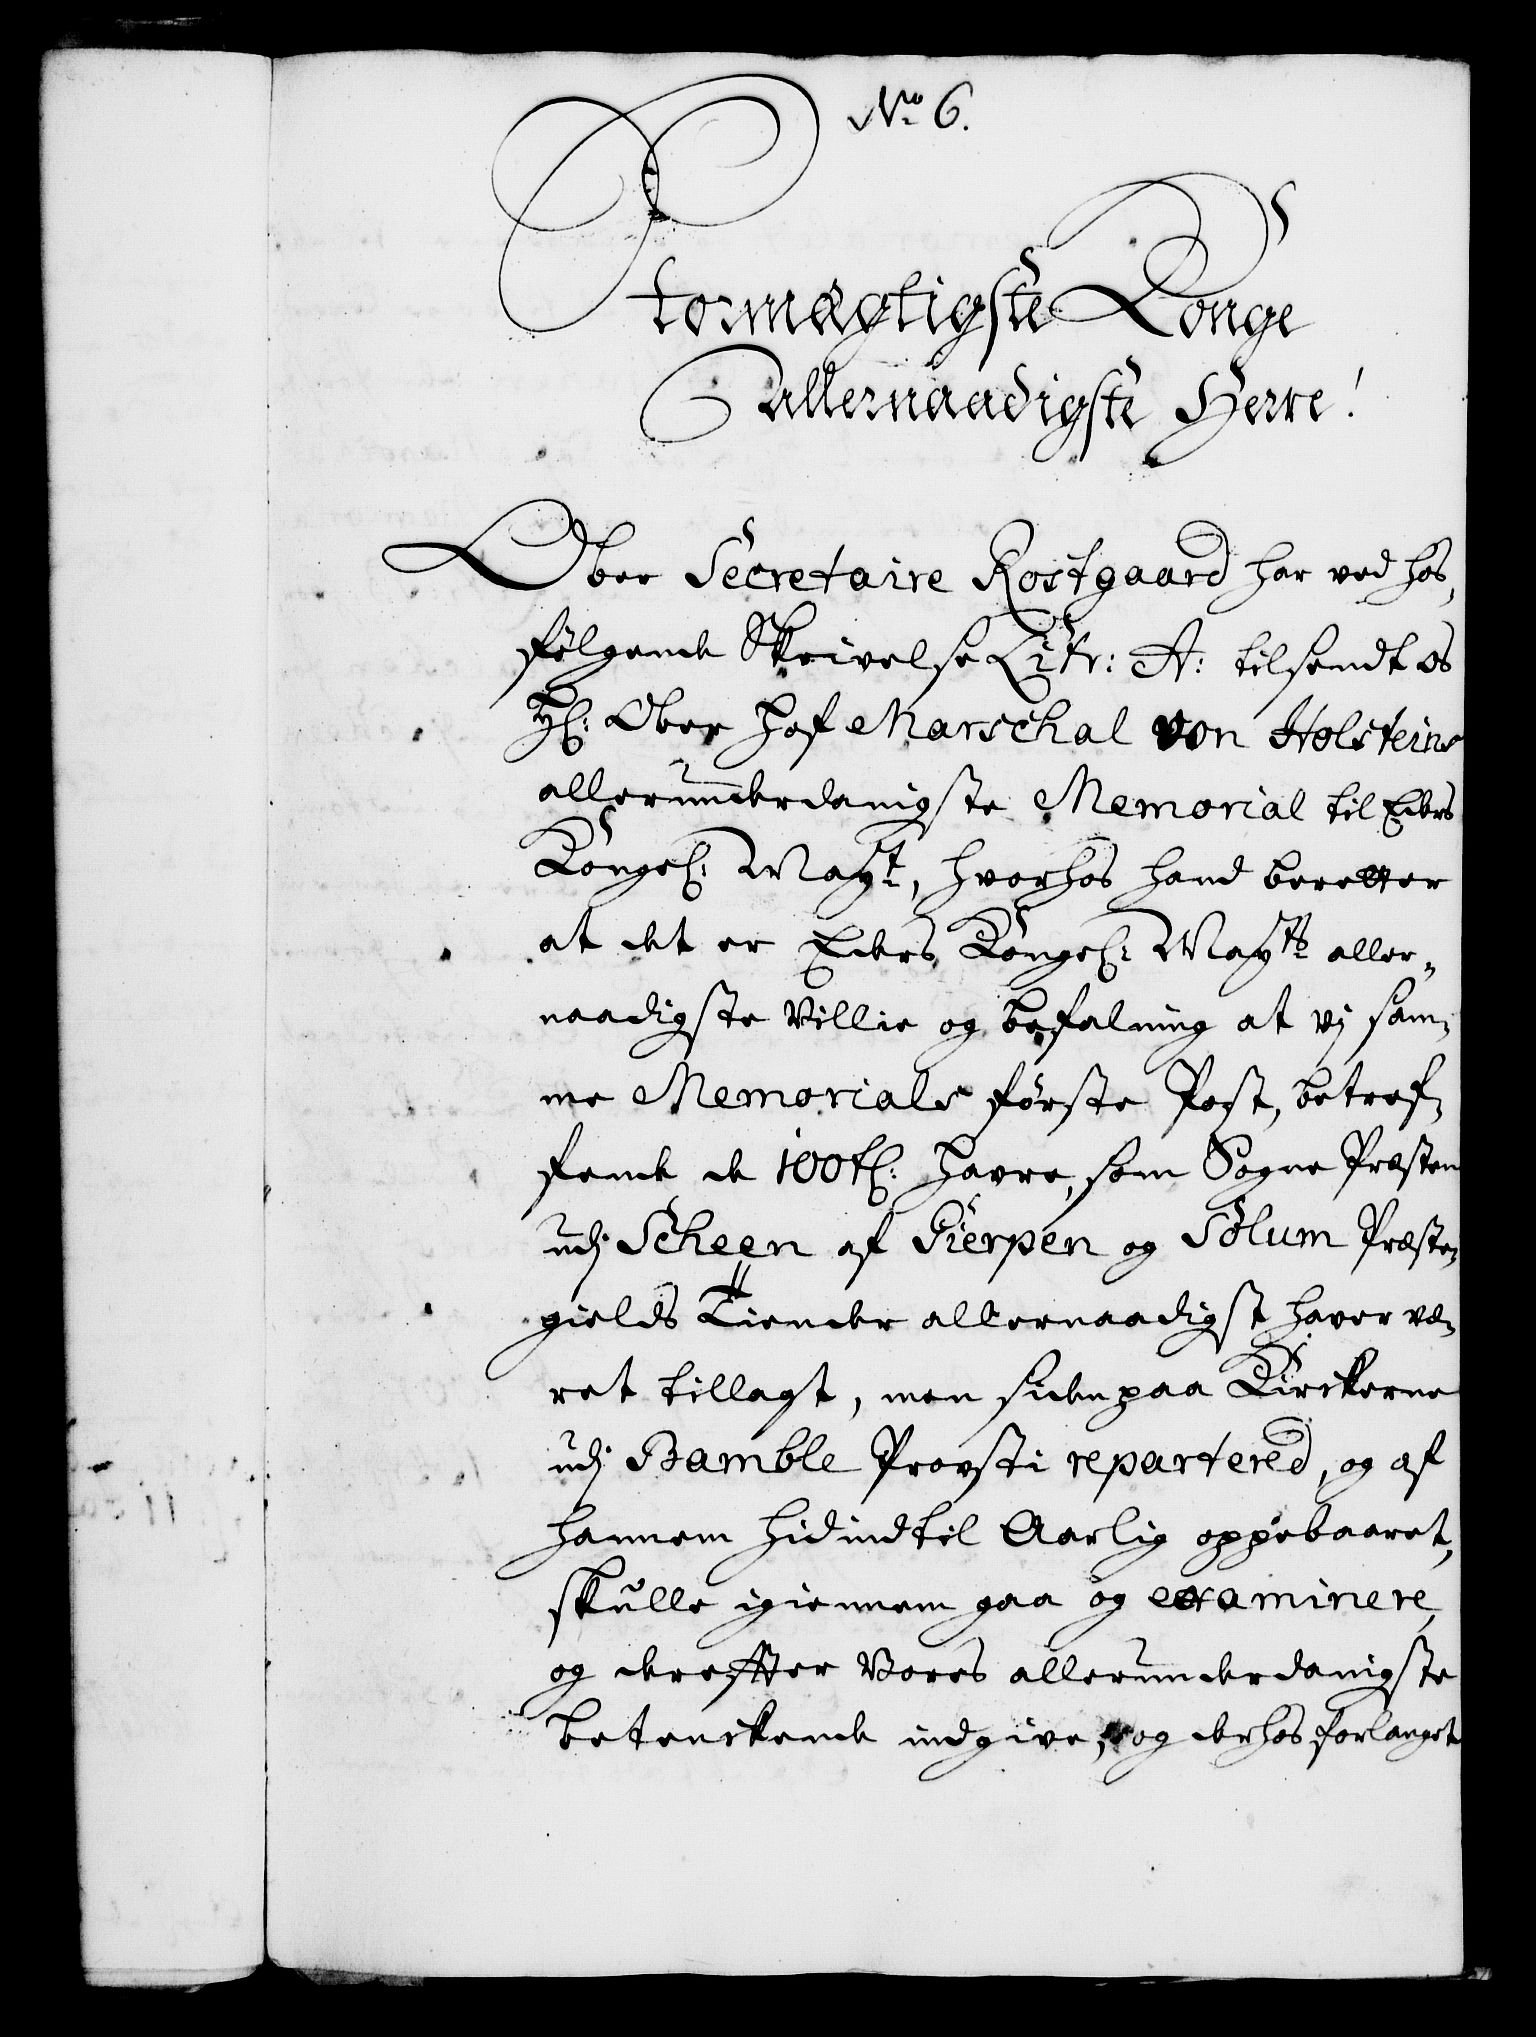 No 6.
Stormægtigste Konge
allernaadigste Herre!
Ober Secretaire Rostgaard har ved hos,
følgende Skrivelse Litr: A: tilsendt os
Hl: Ober Hof Marschal von Holsteins
allerunderdanigste Memorial til Eders
Kongel: Mayt, hvorhos hand beretter
at det er Eders Kongel: Mayts aller,,
naadigste Villie og befalning at vj sam,
me Memorials første Post, betref,
fende de 100 tl: Havre, som Sogne Præsten
udj Scheen af Gierpen og Sölum Præste,
gields Tiender allernaadigst haver væ,
ret tillagt, men siden paa Kirckerne
udj Bamble Provsti repartered, og af
hannem hidindtil Aarlig oppebaaret,
skulle igiennem gaa og examinere,
og derefter Vores allerunderdanigste
betenckende indgive, og derhos forlanget